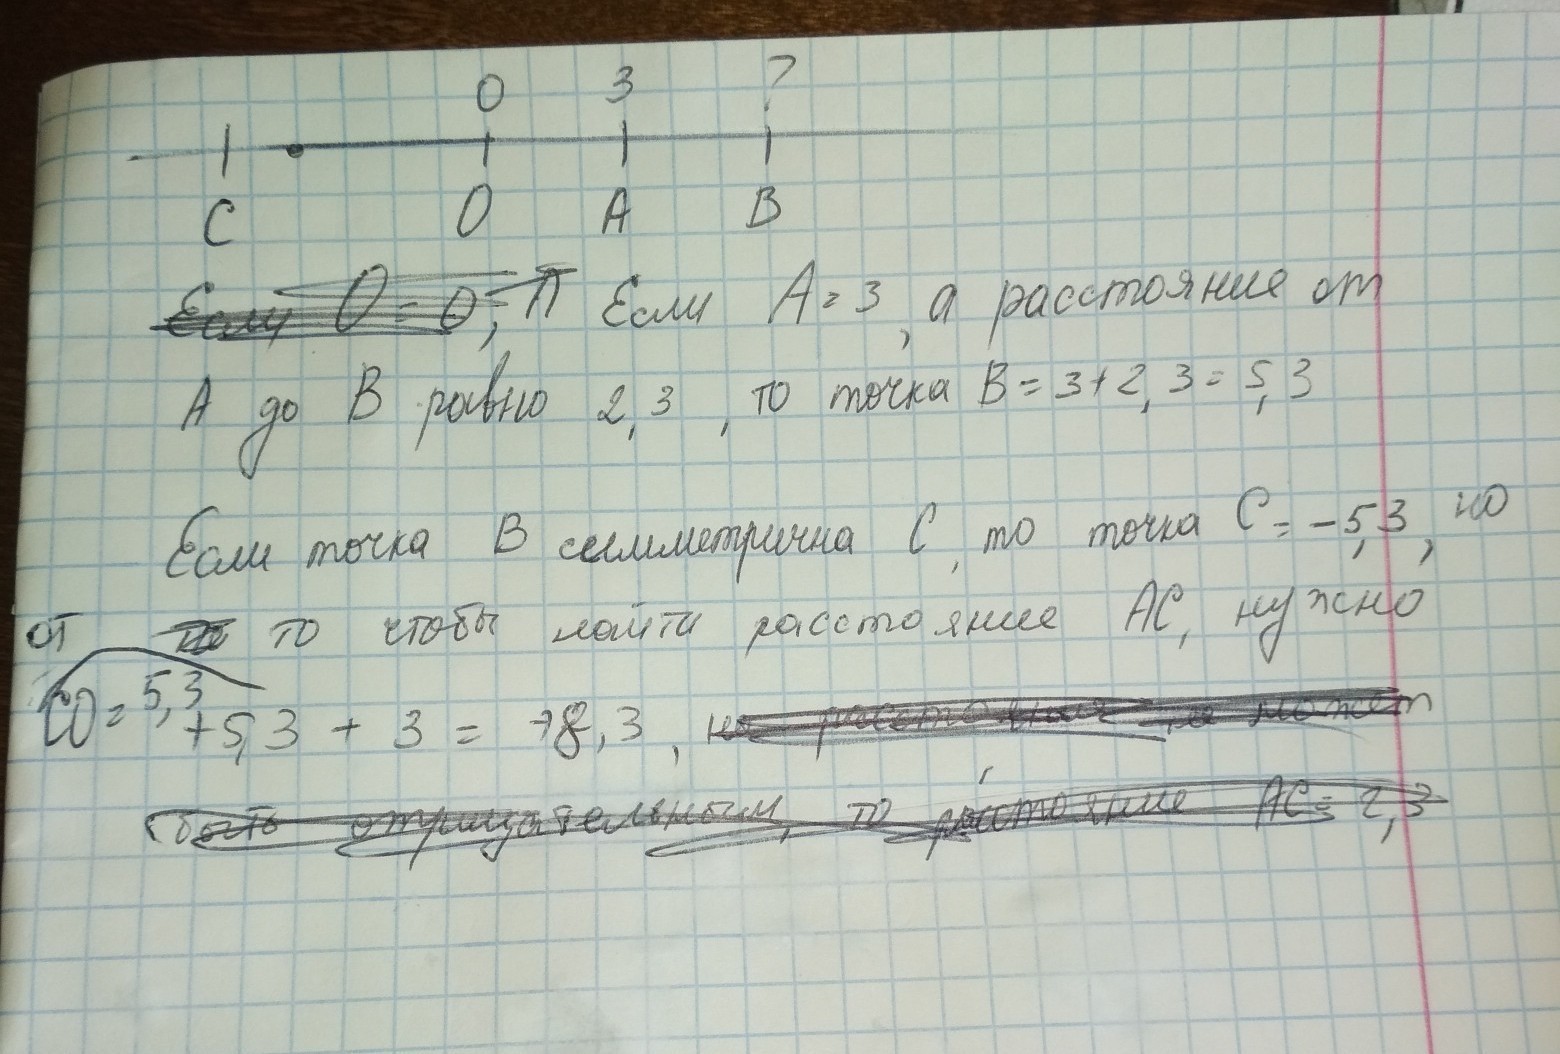 0 3 ?
C O A B
Если O = 0, П Если A = 3, а расстояние от
A до B равно 2,3, то точка B = 3 + 2,3 = 5,3
Если точка B симметрична C, то точка C = -5,3, но
от то чтобы найти расстояние AC, нужно
CO = 5,3
+5,3 + 3 = +8,3, но расстояние не может
быть отрицательным, то расстояние AC = 2,3